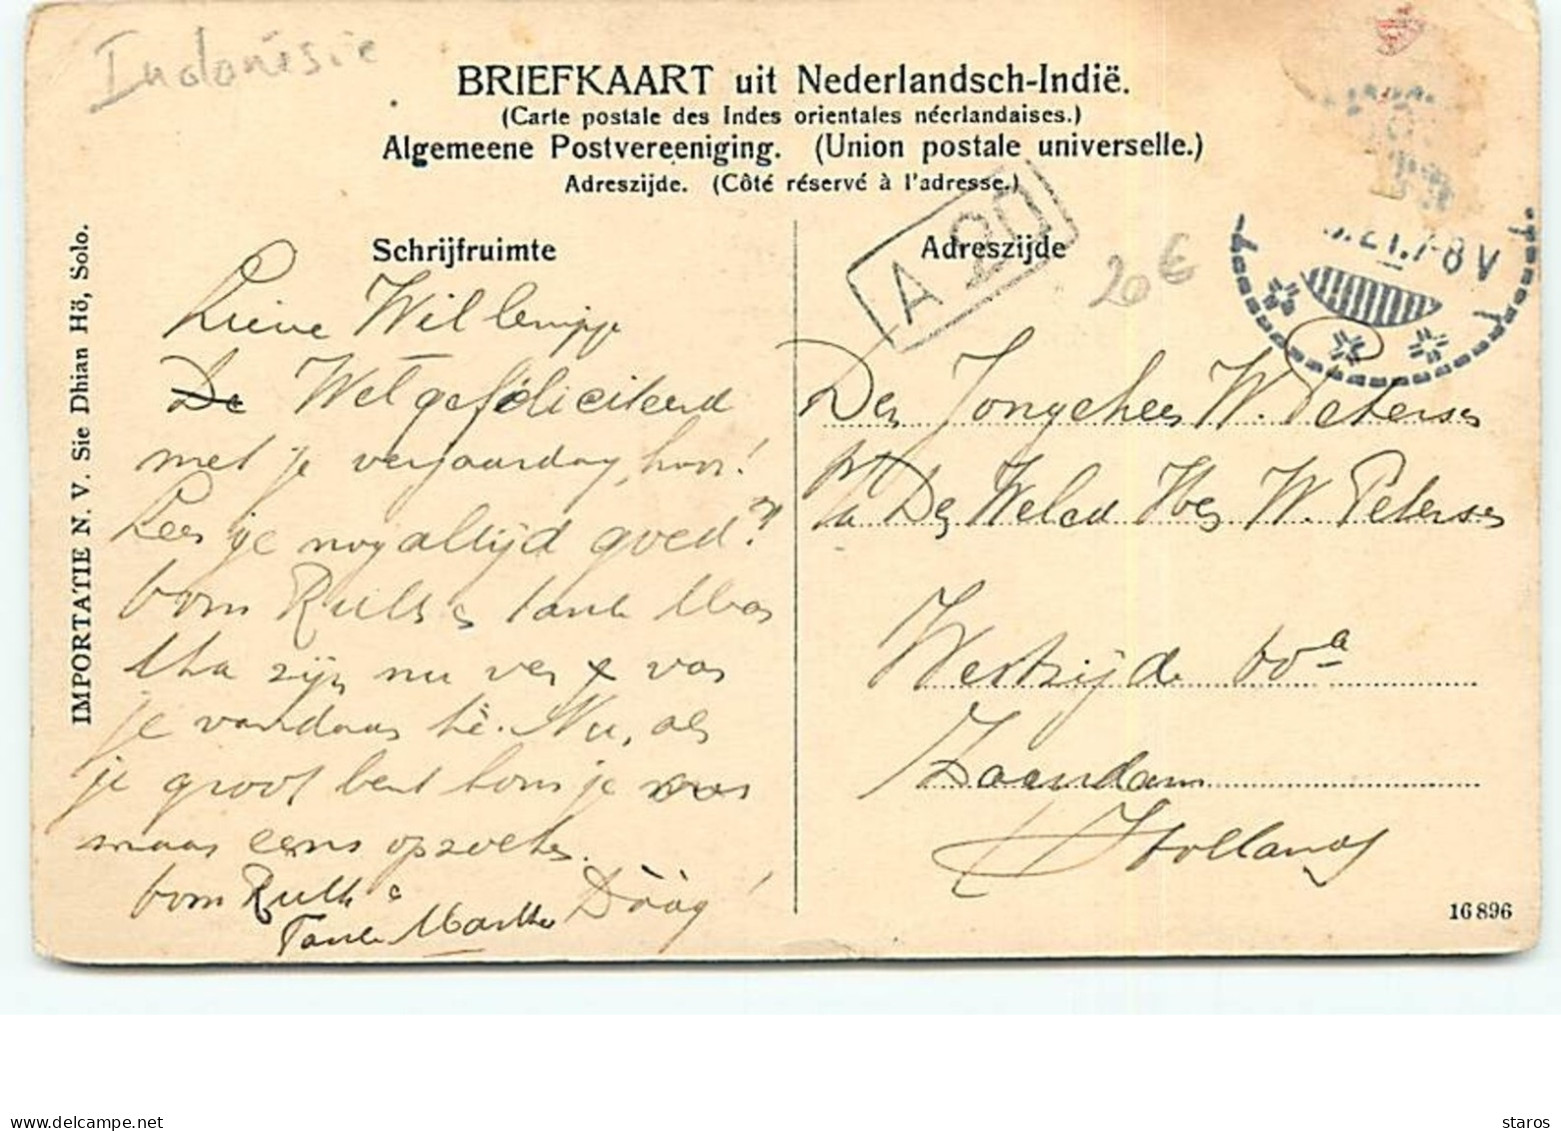 Indonésie
BRIEFKAART uit Nederlandsch-Indië.
(Carte postale des Indes orientales néerlandaises.)
Algemeene Postvereeniging. (Union postale universelle.)
Adreszijde. (Côté réservé à l'adresse.)
IMPORTATIE N. V. Sie Dhian Hö, Solo.
Schrijfruimte
Lieve Willempje
De Wel gefeliciteerd
met je verjaardag, hoor!
Leer je nog altijd goed?
Oom Ruth & tante Mar
tha zijn nu ver van
je vandaan hè. Nu, als
je groot bent kom je
maar eens opzoeken.
Oom Ruth &
Tante Martha Dààg!
A 20
Adreszijde
20 €
.21.7-8 V
Den Jongeheer W. Peterse
p/a
Den Weled Heer W. Peterse
Westzijde 60a
Zaandam
Holland
16896
staros